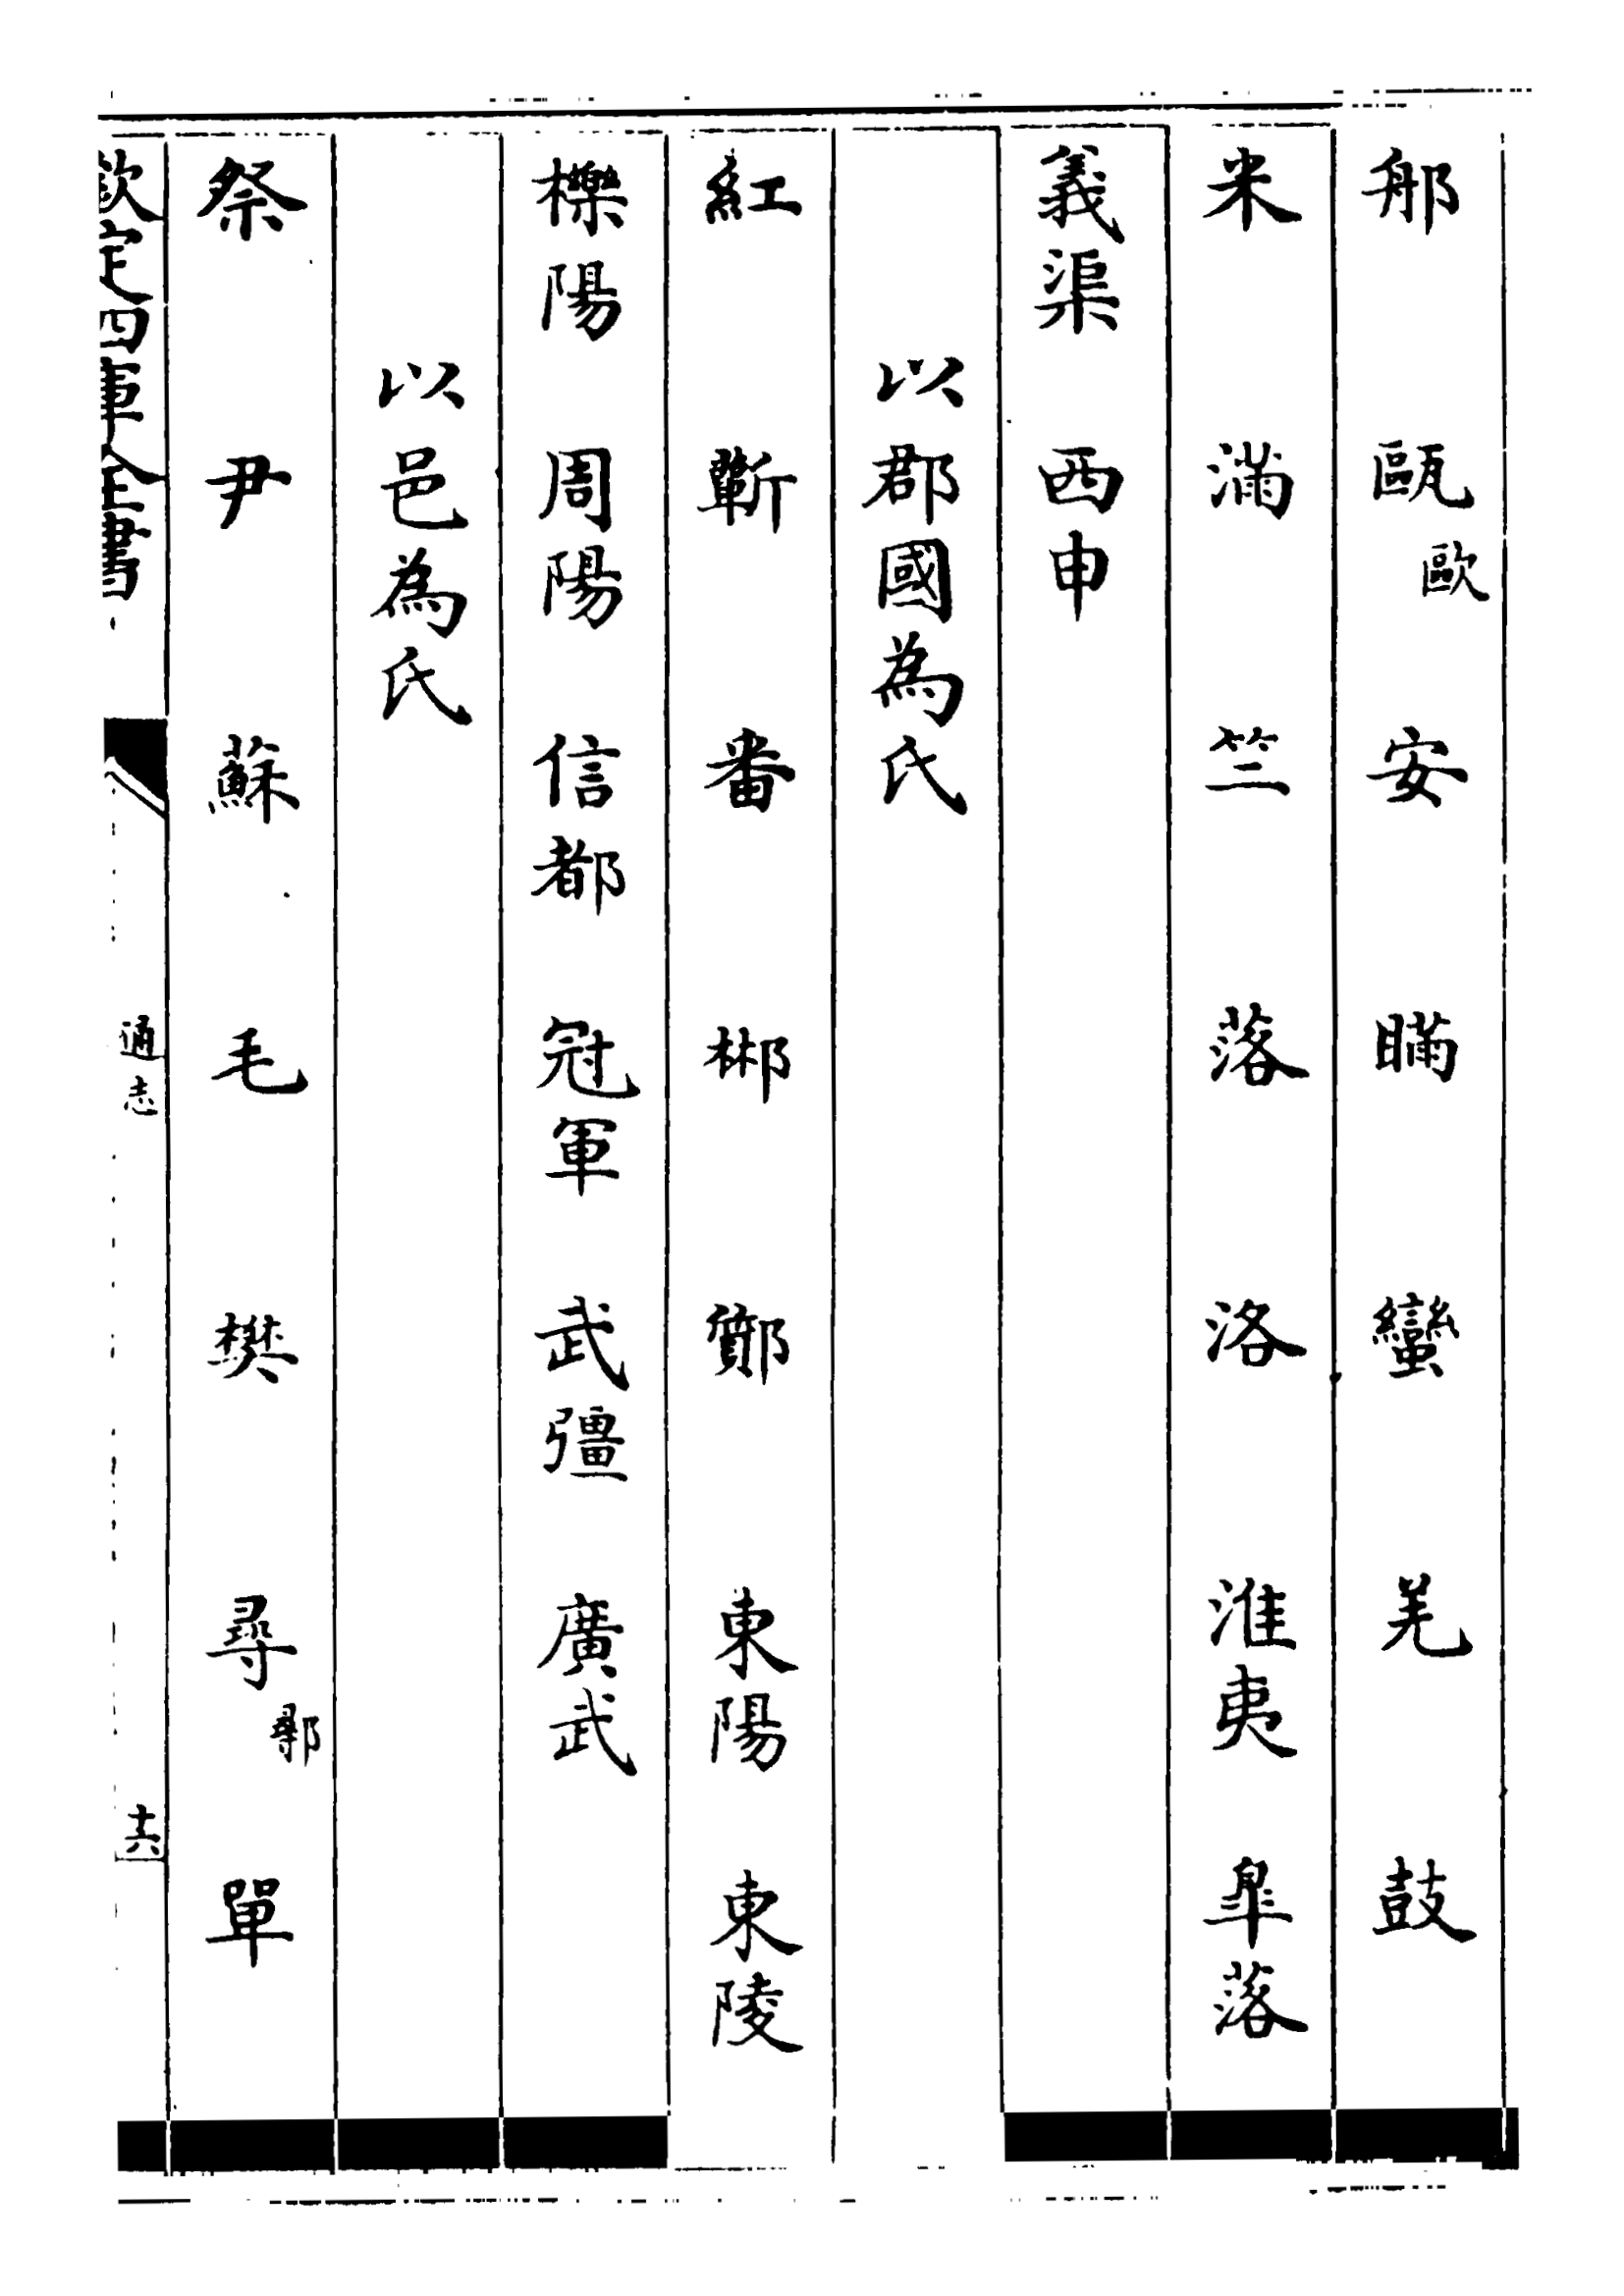 郍 甌 歐 安 瞞 蠻 羌 鼓
米 滿 竺 落 洛 淮夷 臯落
義渠 西申
以郡國為氏
紅 蘄 番 郴 鄮 東陽 東陵
櫟陽 周陽 信都 冠軍 武彊 廣武
以邑為氏
祭 尹 蘇 毛 樊 尋 鄩 單
欽定四庫全書 通志 十六